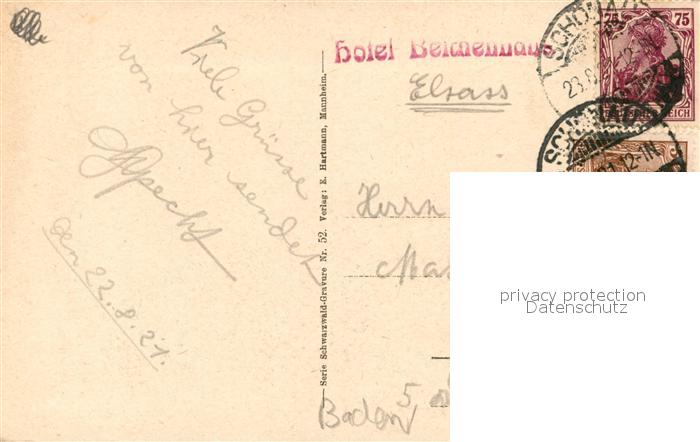 Viele Grüsse
von hier sendet
Specht
den 22.8.21.
Serie Schwarzwald-Gravure Nr. 52. Verlag: E. Hartmann, Mannheim.
Hotel Belchenhaus
Elsass
Herrn
Baden
5
75 75
REICH
SCHÖNAU
12-1N
12-1N
privacy protection
Datenschutz